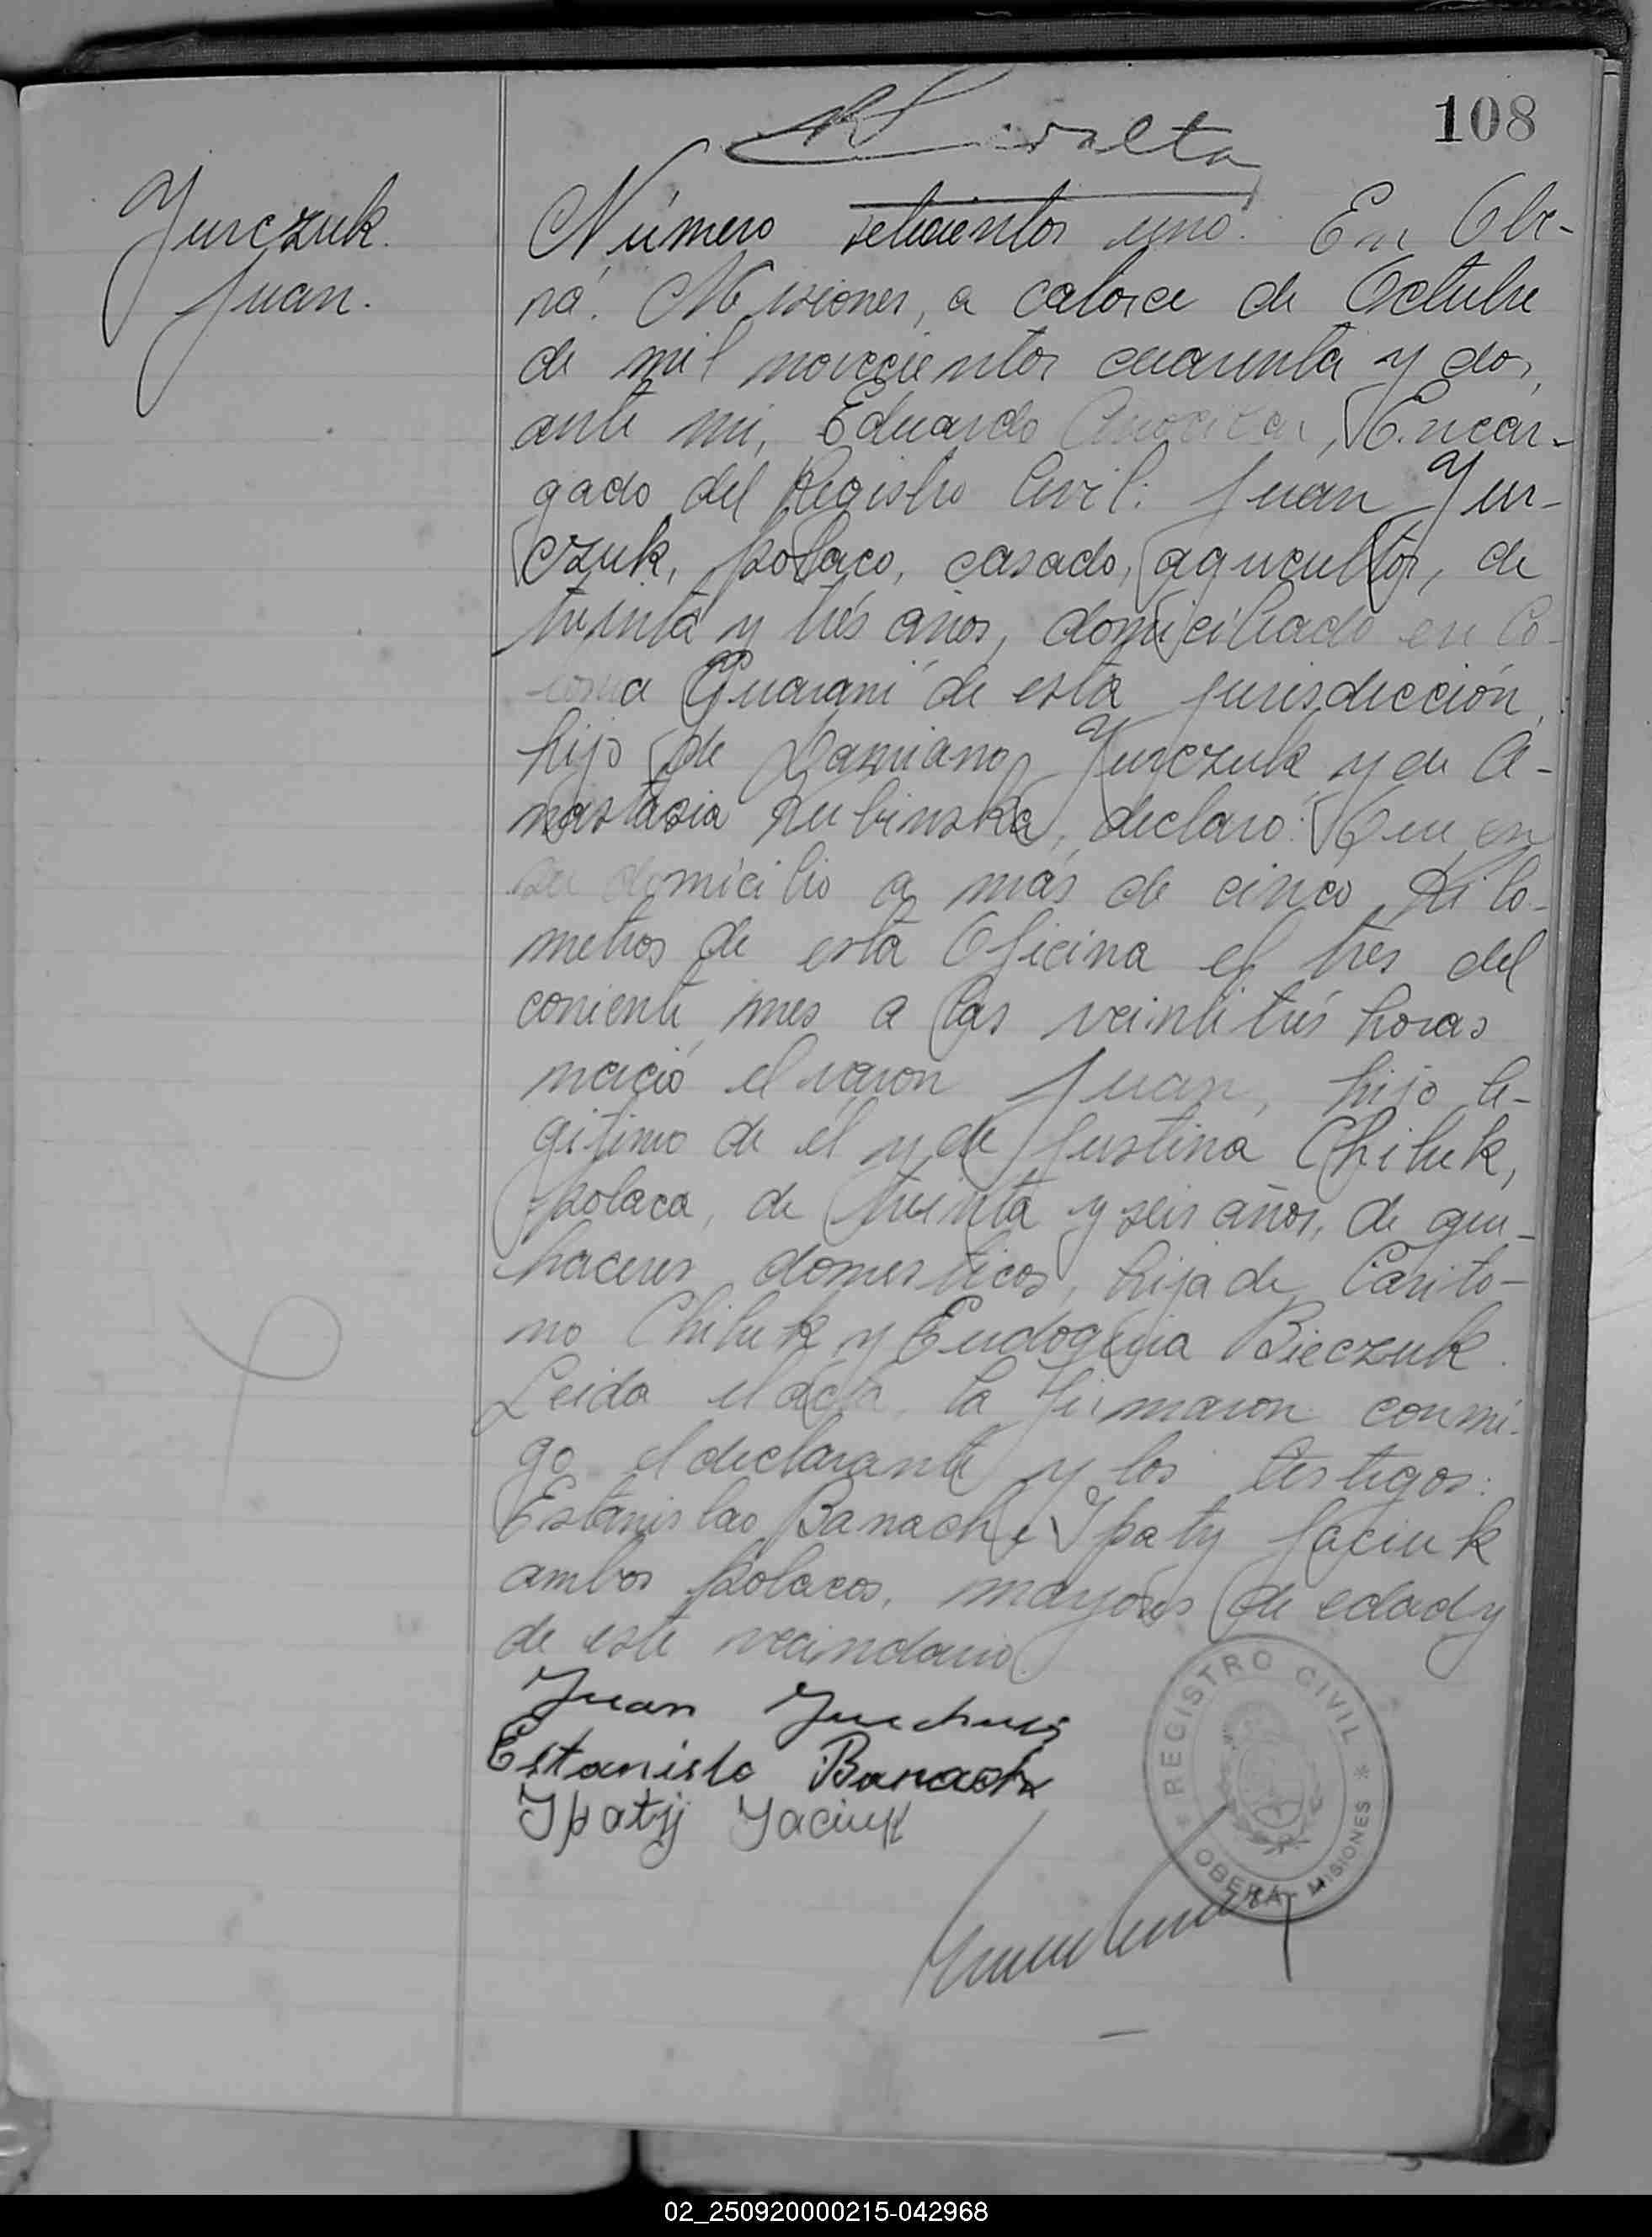 108
Yurczuk
Juan.
Número setecientos uno. En Obe-
rá. Misiones, a catorce de Octubre
de mil novecientos cuarenta y dos,
ante mi, Eduardo Encar-
gado del Registro Civil: Juan Yur-
czuk, polaco, casado, agricultor, de
treinta y trés años, domiciliado en Co-
lonia Guaraní de esta jurisdicción,
hijo de Damiano Yurczuk y de A-
nastasia Kubinska, declaro: Que en
su domicilio a más de cinco Kilo-
metros de esta Oficina el tres del
corriente mes a las veintitrés horas
nació el varon Juan, hijo le-
gitimo de él y de Justina Chiluk,
polaca, de treinta y seis años, de que-
haceres domesticos, hija de Carito-
no Chiluk y Eudogenia Bieczuk.
Leida el acta, la firmaron conmi-
go el declarante y los testigos:
Estanislao Banach e Ypaty Jaciuk
ambos polacos, mayores de edad y
de este vecindario.
Juan
Estanislo Banach
Ypatij Yaciuk
REGISTRO CIVIL
* OBERÁ - MISIONES *
02_250920000215-042968